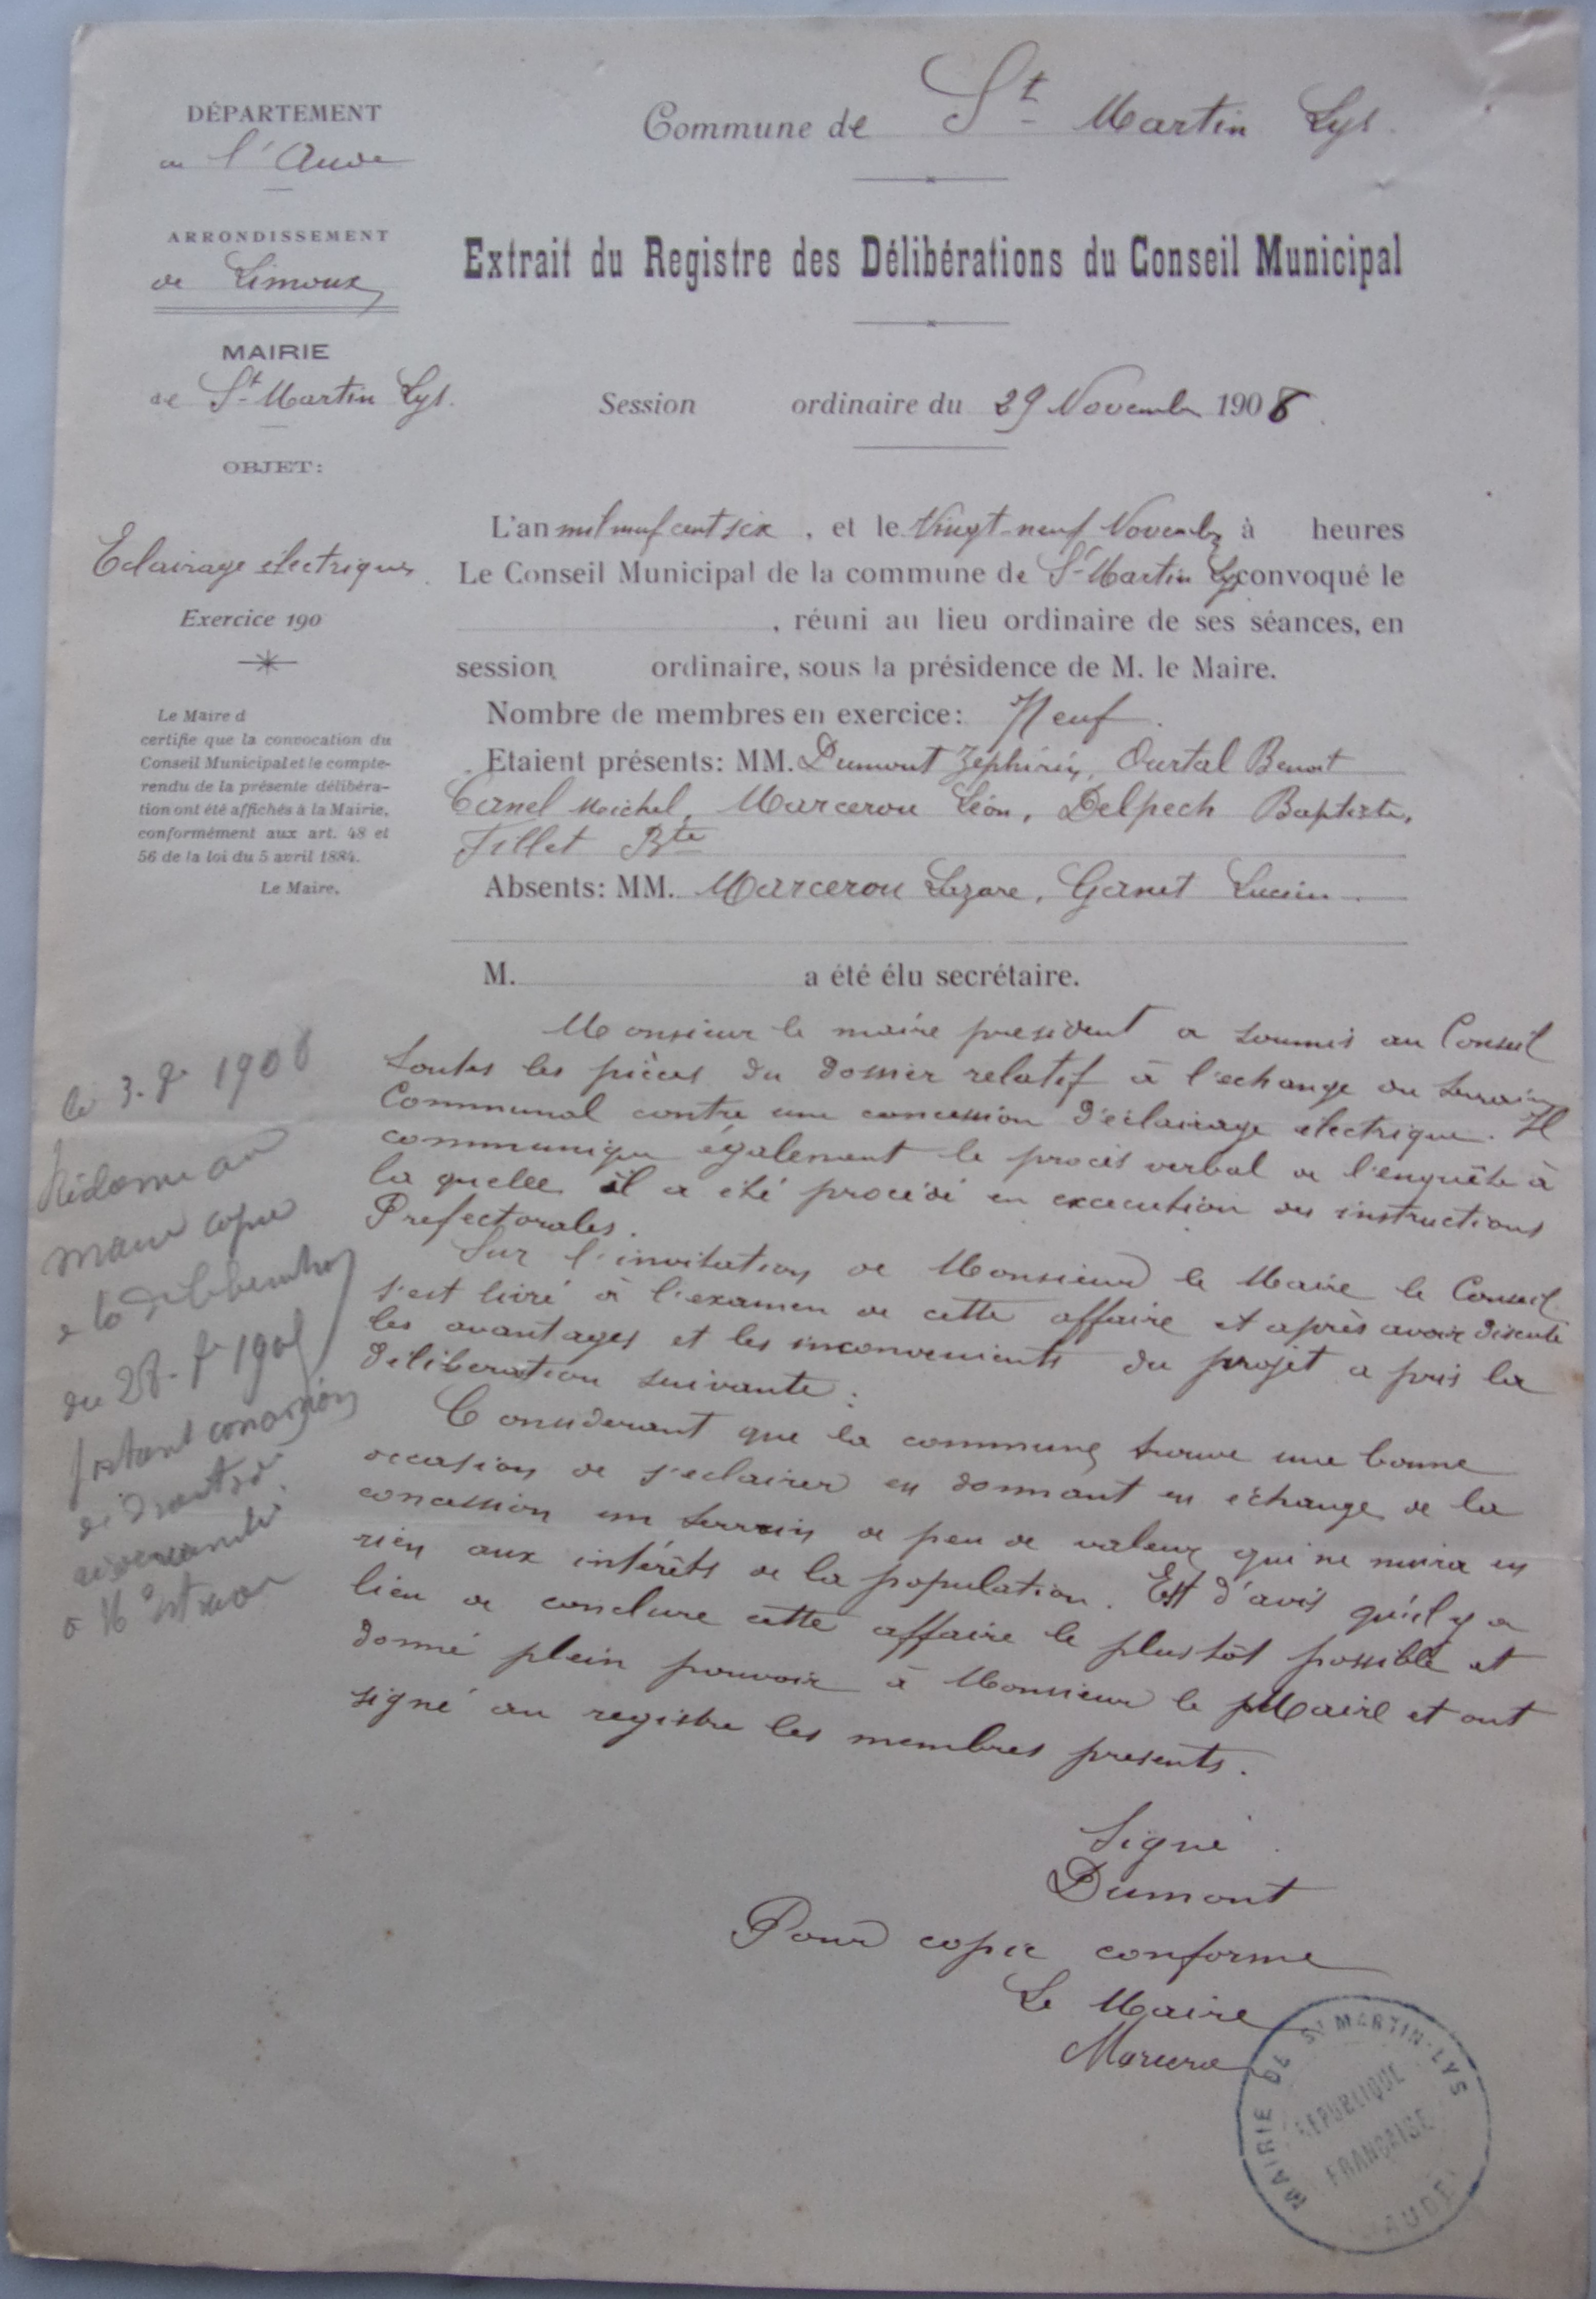 DÉPARTEMENT
de l'Aude
ARRONDISSEMENT
de Limoux
MAIRIE
de St Martin Lys.
OBJET:
Eclairage électrique.
Exercice 190
Le Maire d
certifie que la convocation du
Conseil Municipal et le compte-
rendu de la présente délibéra-
tion ont été affichés à la Mairie,
conformément aux art. 48 et
56 de la loi du 5 avril 1884.
Le Maire,
le 3. 1908
maire copie
du 28. 1908
Commune de St Martin Lys.
Extrait du Registre des Délibérations du Conseil Municipal
Session ordinaire du 29 Novembre 1908.
L'an mil neuf cent six, et le Vingt-neuf Novembre à heures
Le Conseil Municipal de la commune de St Martin Lys convoqué le
, réuni au lieu ordinaire de ses séances, en
session ordinaire, sous la présidence de M. le Maire.
Nombre de membres en exercice: Neuf.
Etaient présents: MM. Dumont Zéphirin, Ourtal Benoit
Canel Michel, Marcerou Léon, Delpech Baptiste,
Fillet Bte
Absents: MM. Marcerou Lazare, Ganet Lucien.
M. a été élu secrétaire.
Monsieur le maire president a soumis au Conseil
toutes les pièces du dossier relatif à l'echange du terrain
Communal contre une concession d'éclairage electrique. Il
communique également le procès verbal de l'enquête à
la quelle il a été procédé en excecution des instructions
Prefectorales.
Sur l'invitation de Monsieur le Maire le Conseil
s'est livré à l'examen de cette affaire et après avoir discuté
les avantages et les inconvenients du projet a pris la
deliberation suivante:
Considerant que la commune trouve une bonne
occasion de s'eclairer en donnant en échange de la
concession un terrain de peu de valeur qui ne nuira en
rien aux intérêts de la population. Est d'avis qu'il y a
lieu de conclure cette affaire le plus tôt possible et
donné plein pouvoir à Monsieur le Maire et ont
signé au registre les membres presents.
Signé
Dumont
Pour copie conforme
Le Maire
MAIRIE DE St MARTIN-LYS
RÉPUBLIQUE
FRANÇAISE
AUDE